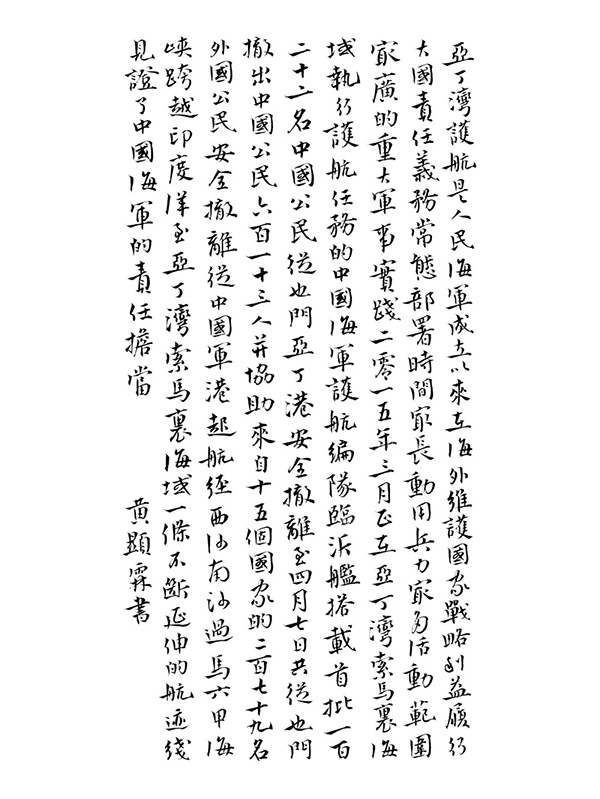 亞丁灣護航是人民海軍成立以來在海外維護國家戰略利益履行
大國責任義務常態部署時間㝡長動用兵力㝡多活動範圍
㝡廣的重大軍事實踐二零一五年三月正在亞丁灣索馬裏海
域執行護航任務的中國海軍護航編隊臨沂艦搭載首批一百
二十二名中國公民從也門亞丁港安全撤離至四月七日共從也門
撤出中國公民六百一十三人并協助來自十五個國家的二百七十九名
外國公民安全撤離從中國軍港起航經西沙南沙過馬六甲海
峽跨越印度洋至亞丁灣索馬裏海域一條不斷延伸的航迹綫
見證了中國海軍的責任擔當
黄顯霖書